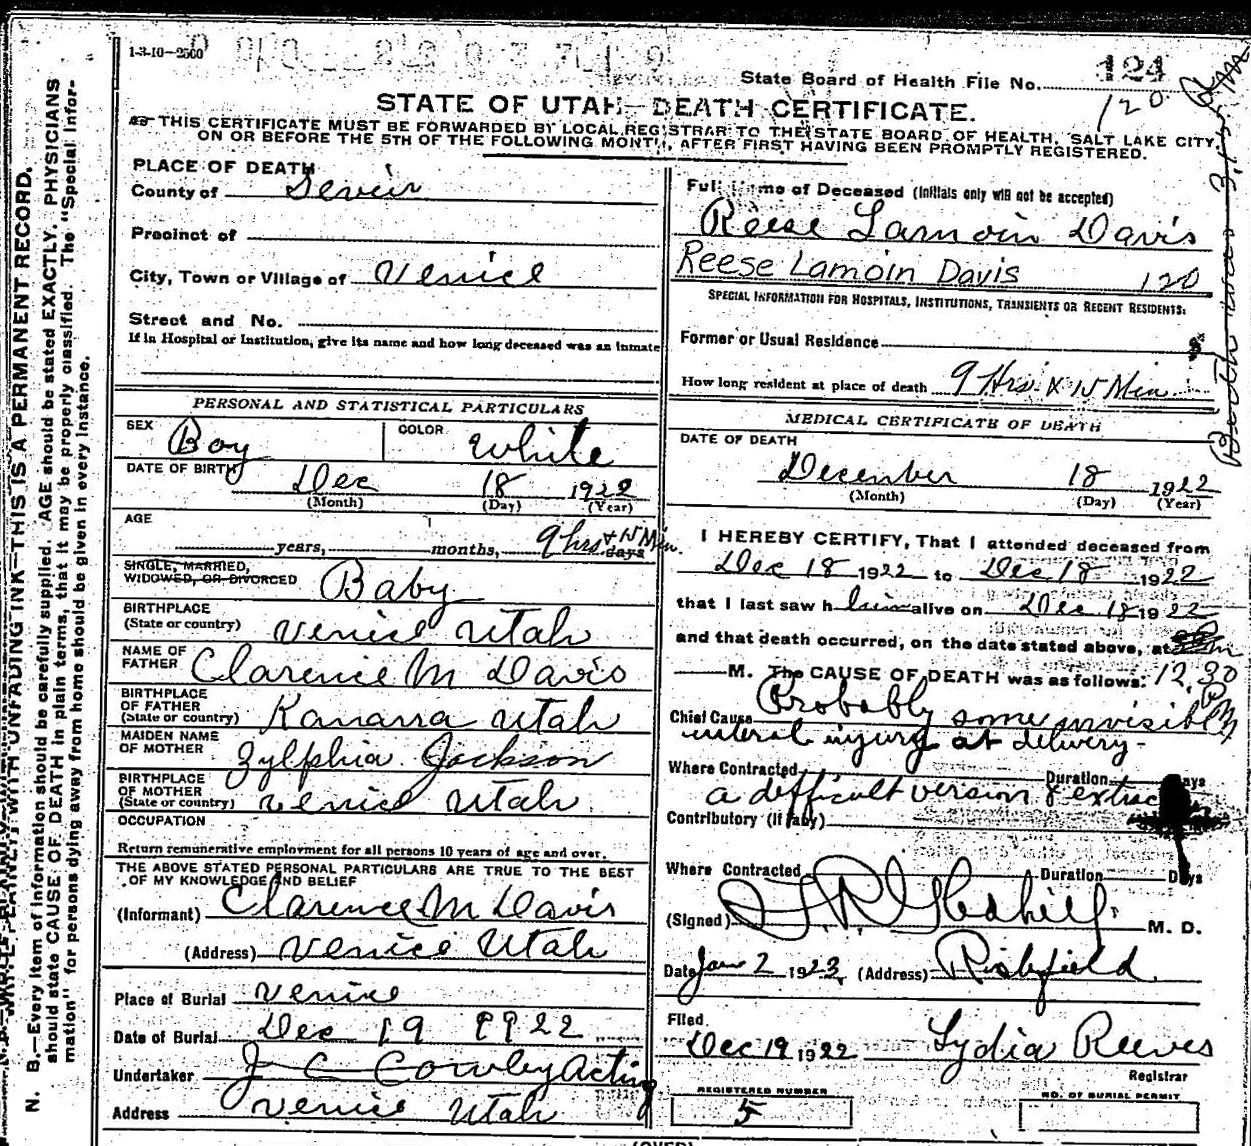 1-3-10-2500
State Board of Health File No. 124
120
STATE OF UTAH—DEATH CERTIFICATE.
THIS CERTIFICATE MUST BE FORWARDED BY LOCAL REGISTRAR TO THE STATE BOARD OF HEALTH, SALT LAKE CITY,
ON OR BEFORE THE 5TH OF THE FOLLOWING MONTH, AFTER FIRST HAVING BEEN PROMPTLY REGISTERED.
N. B.—Every item of Information should be carefully supplied. AGE should be stated EXACTLY. PHYSICIANS
should state CAUSE OF DEATH in plain terms, that it may be properly classified. The "Special Infor-
mation" for persons dying away from home should be given in every instance.
WITH UNFADING INK—THIS IS A PERMANENT RECORD.
PLACE OF DEATH
County of Sevier
Precinct of
City, Town or Village of Venice
Street and No.
If in Hospital or Institution, give its name and how long deceased was an inmate
PERSONAL AND STATISTICAL PARTICULARS
SEX Boy COLOR White
DATE OF BIRTH Dec 18 1922
(Month) (Day) (Year)
AGE
years, months, 9 hrs + 15 Min. days
SINGLE, MARRIED,
WIDOWED, OR DIVORCED Baby
BIRTHPLACE
(State or country) Venice Utah
NAME OF
FATHER Clarence M Davis
BIRTHPLACE
OF FATHER
(State or country) Kanarra Utah
MAIDEN NAME
OF MOTHER Zylphia Jackson
BIRTHPLACE
OF MOTHER
(State or country) Venice Utah
OCCUPATION
Return remunerative employment for all persons 10 years of age and over.
THE ABOVE STATED PERSONAL PARTICULARS ARE TRUE TO THE BEST
OF MY KNOWLEDGE AND BELIEF
(Informant) Clarence M Davis
(Address) Venice Utah
Place of Burial Venice
Date of Burial Dec 19 1922
Undertaker J C Cowley Acting
Address Venice Utah
Full Name of Deceased (Initials only will not be accepted)
Reese Lamoin Davis
Reese Lamoin Davis 120
SPECIAL INFORMATION FOR HOSPITALS, INSTITUTIONS, TRANSIENTS OR RECENT RESIDENTS:
Former or Usual Residence
How long resident at place of death 9 Hrs. & 15 Min.
MEDICAL CERTIFICATE OF DEATH
DATE OF DEATH
December 18 1922
(Month) (Day) (Year)
I HEREBY CERTIFY, That I attended deceased from
Dec 18 1922 to Dec 18 1922
that I last saw h him alive on Dec 18 1922
and that death occurred, on the date stated above, at
M. The CAUSE OF DEATH was as follows: 12,30 PM
Chief Cause Probably some invisible
internal injury at delivery-
Where Contracted Duration Days
a difficult version & extrac
Contributory (If any)
Where Contracted Duration Days
(Signed) M. D.
Date Jan 2 1923, (Address) Richfield
Filed
Dec 19 1922 Lydia Reeves
Registrar
REGISTERED NUMBER
5
NO. OF BURIAL PERMIT
(OVER)